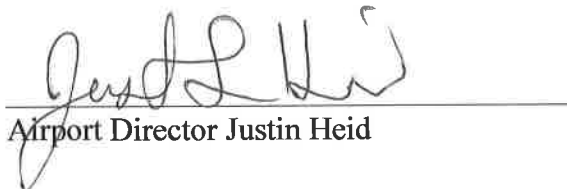 Airport Director Justin Heid